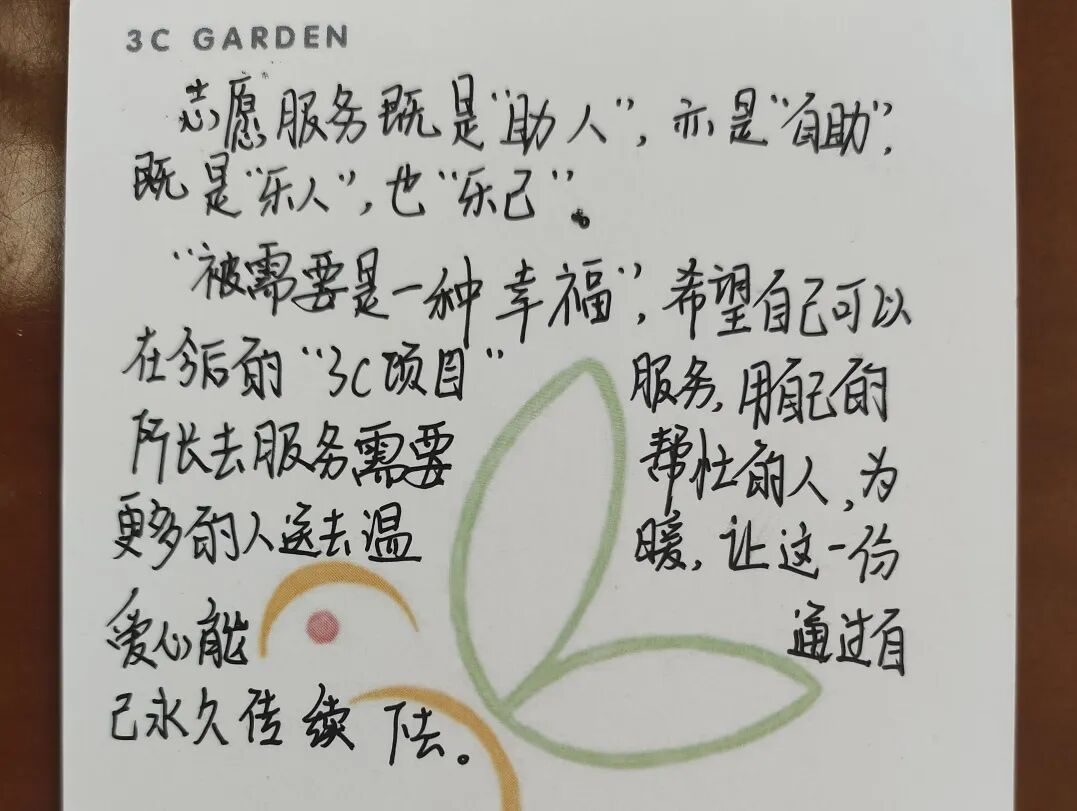 3C GARDEN
志愿服务既是“助人”，亦是“自助”，
既是“乐人”，也“乐己”。
“被需要是一种幸福”，希望自己可以
在今后的“3C项目”服务，用自己的
所长去服务需要帮忙的人，为
更多的人送去温暖，让这一份
爱心能通过自
己永久传续下去。